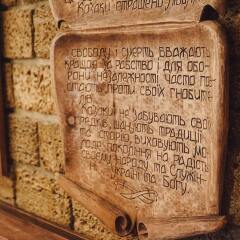 Козаки отрашені, му
свободу і смерть вважають
кращою за рабство і для обо-
рони незалежності часто по-
стають проти своїх гнобите-
лів.
Козаки не забувають сво
предків, шанують традиції
та історію, виховують мо-
лоде покоління на радість
своєму народу та служін-
Україні та Богу.